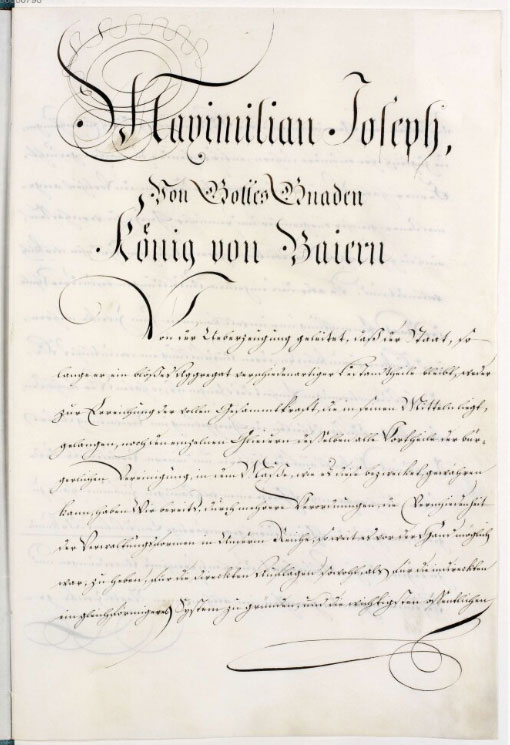 Maximilian Joseph,
Von Gottes Gnaden
König von Baiern
Von der Ueberzeugung geleitet, daß der Staat, so
lange er ein bloßes Aggregat verschiedenartiger Bestandtheile bleibt, weder
zur Erreichung der vollen Gesammtkraft, die in seinen Mitteln liegt,
gelangen, noch den einzelnen Gliedern desselben alle Vortheile der bür-
gerlichen Vereinigung, in dem Maße, wie diese es bezwecket, gewähren
kann, haben Wir bereits durch mehrere Verordnungen die Verschiedenheit
der Verwaltungsformen in Unserm Reiche, so weit es vor der Hand möglich
war, zu heben, für die direckten Auflagen sowohl, als für die indireckten
ein gleichförmigeres System zu gründen, und die wichtigsten öffentlichen